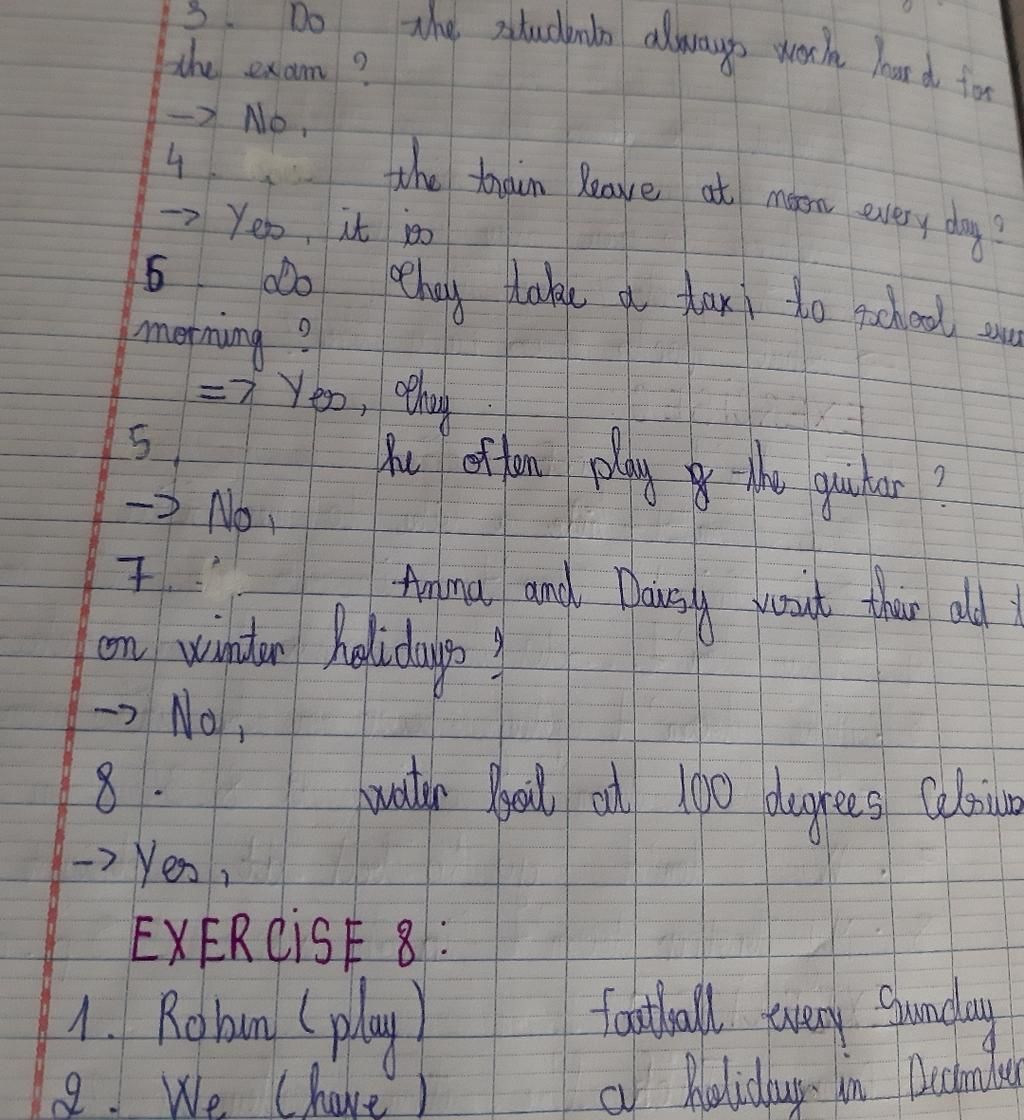 3. Do the students always work hard for
the exam ?
-> No,
4. the train leave at noon every day?
-> Yes, it is
6 Do they take a taxi to school
morning ?
=> Yes, they
5. he often play the guitar ?
-> No,
7. Anna and Daisy visit their old
on winter holidays ?
-> No,
8. water boil at 100 degrees Celsius
-> Yes,
EXERCISE 8 :
1. Robin (play) football every Sunday
2. We (have) a holiday in December